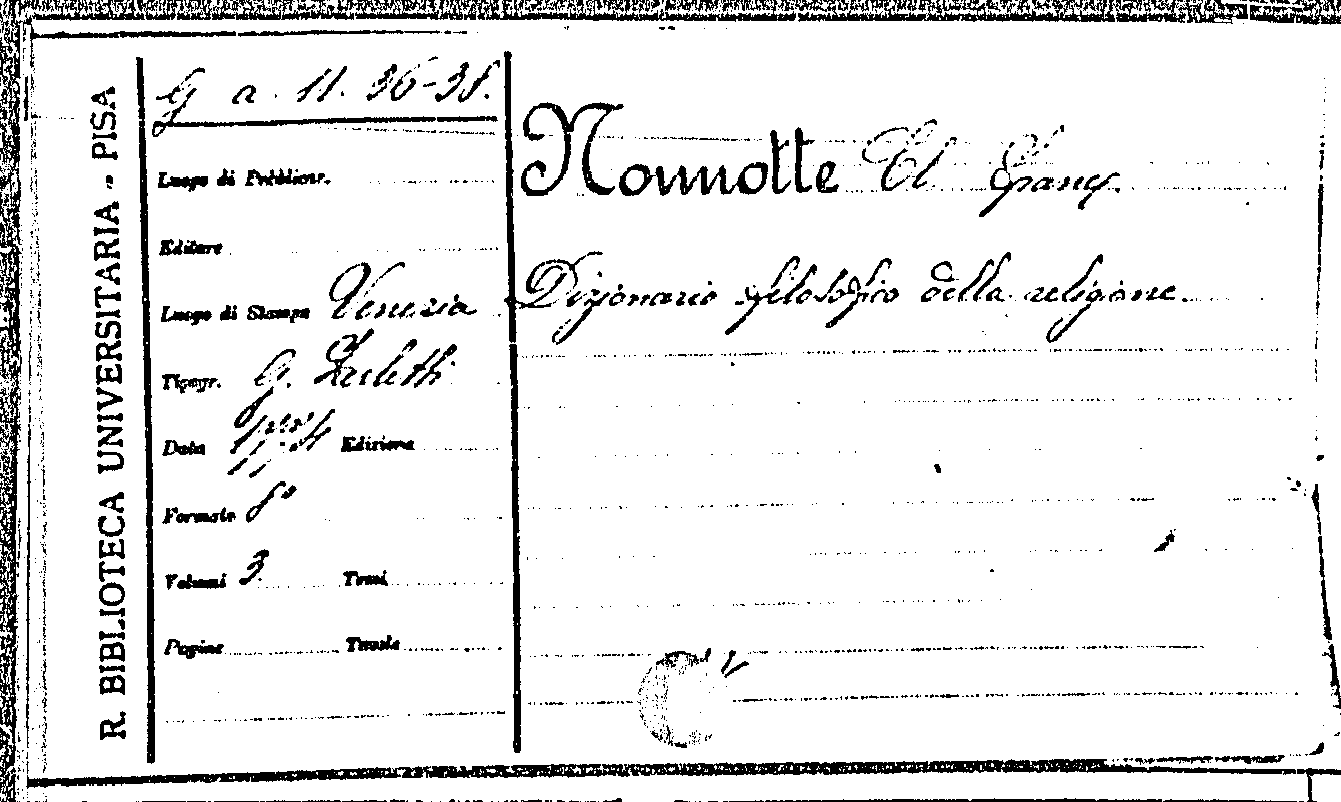 R. BIBLIOTECA UNIVERSITARIA - PISA
G a. 11. 36-38.
Luogo di Pubblicaz.
Editore
Luogo di Stampa Venezia
Tipogr. G. Zerletti
Data 1774 Edizione
Formato 8°
Volumi 3. Tomi
Pagine Tavole
Nonnotte Cl. Franç.
Dizionario filosofico della religione.